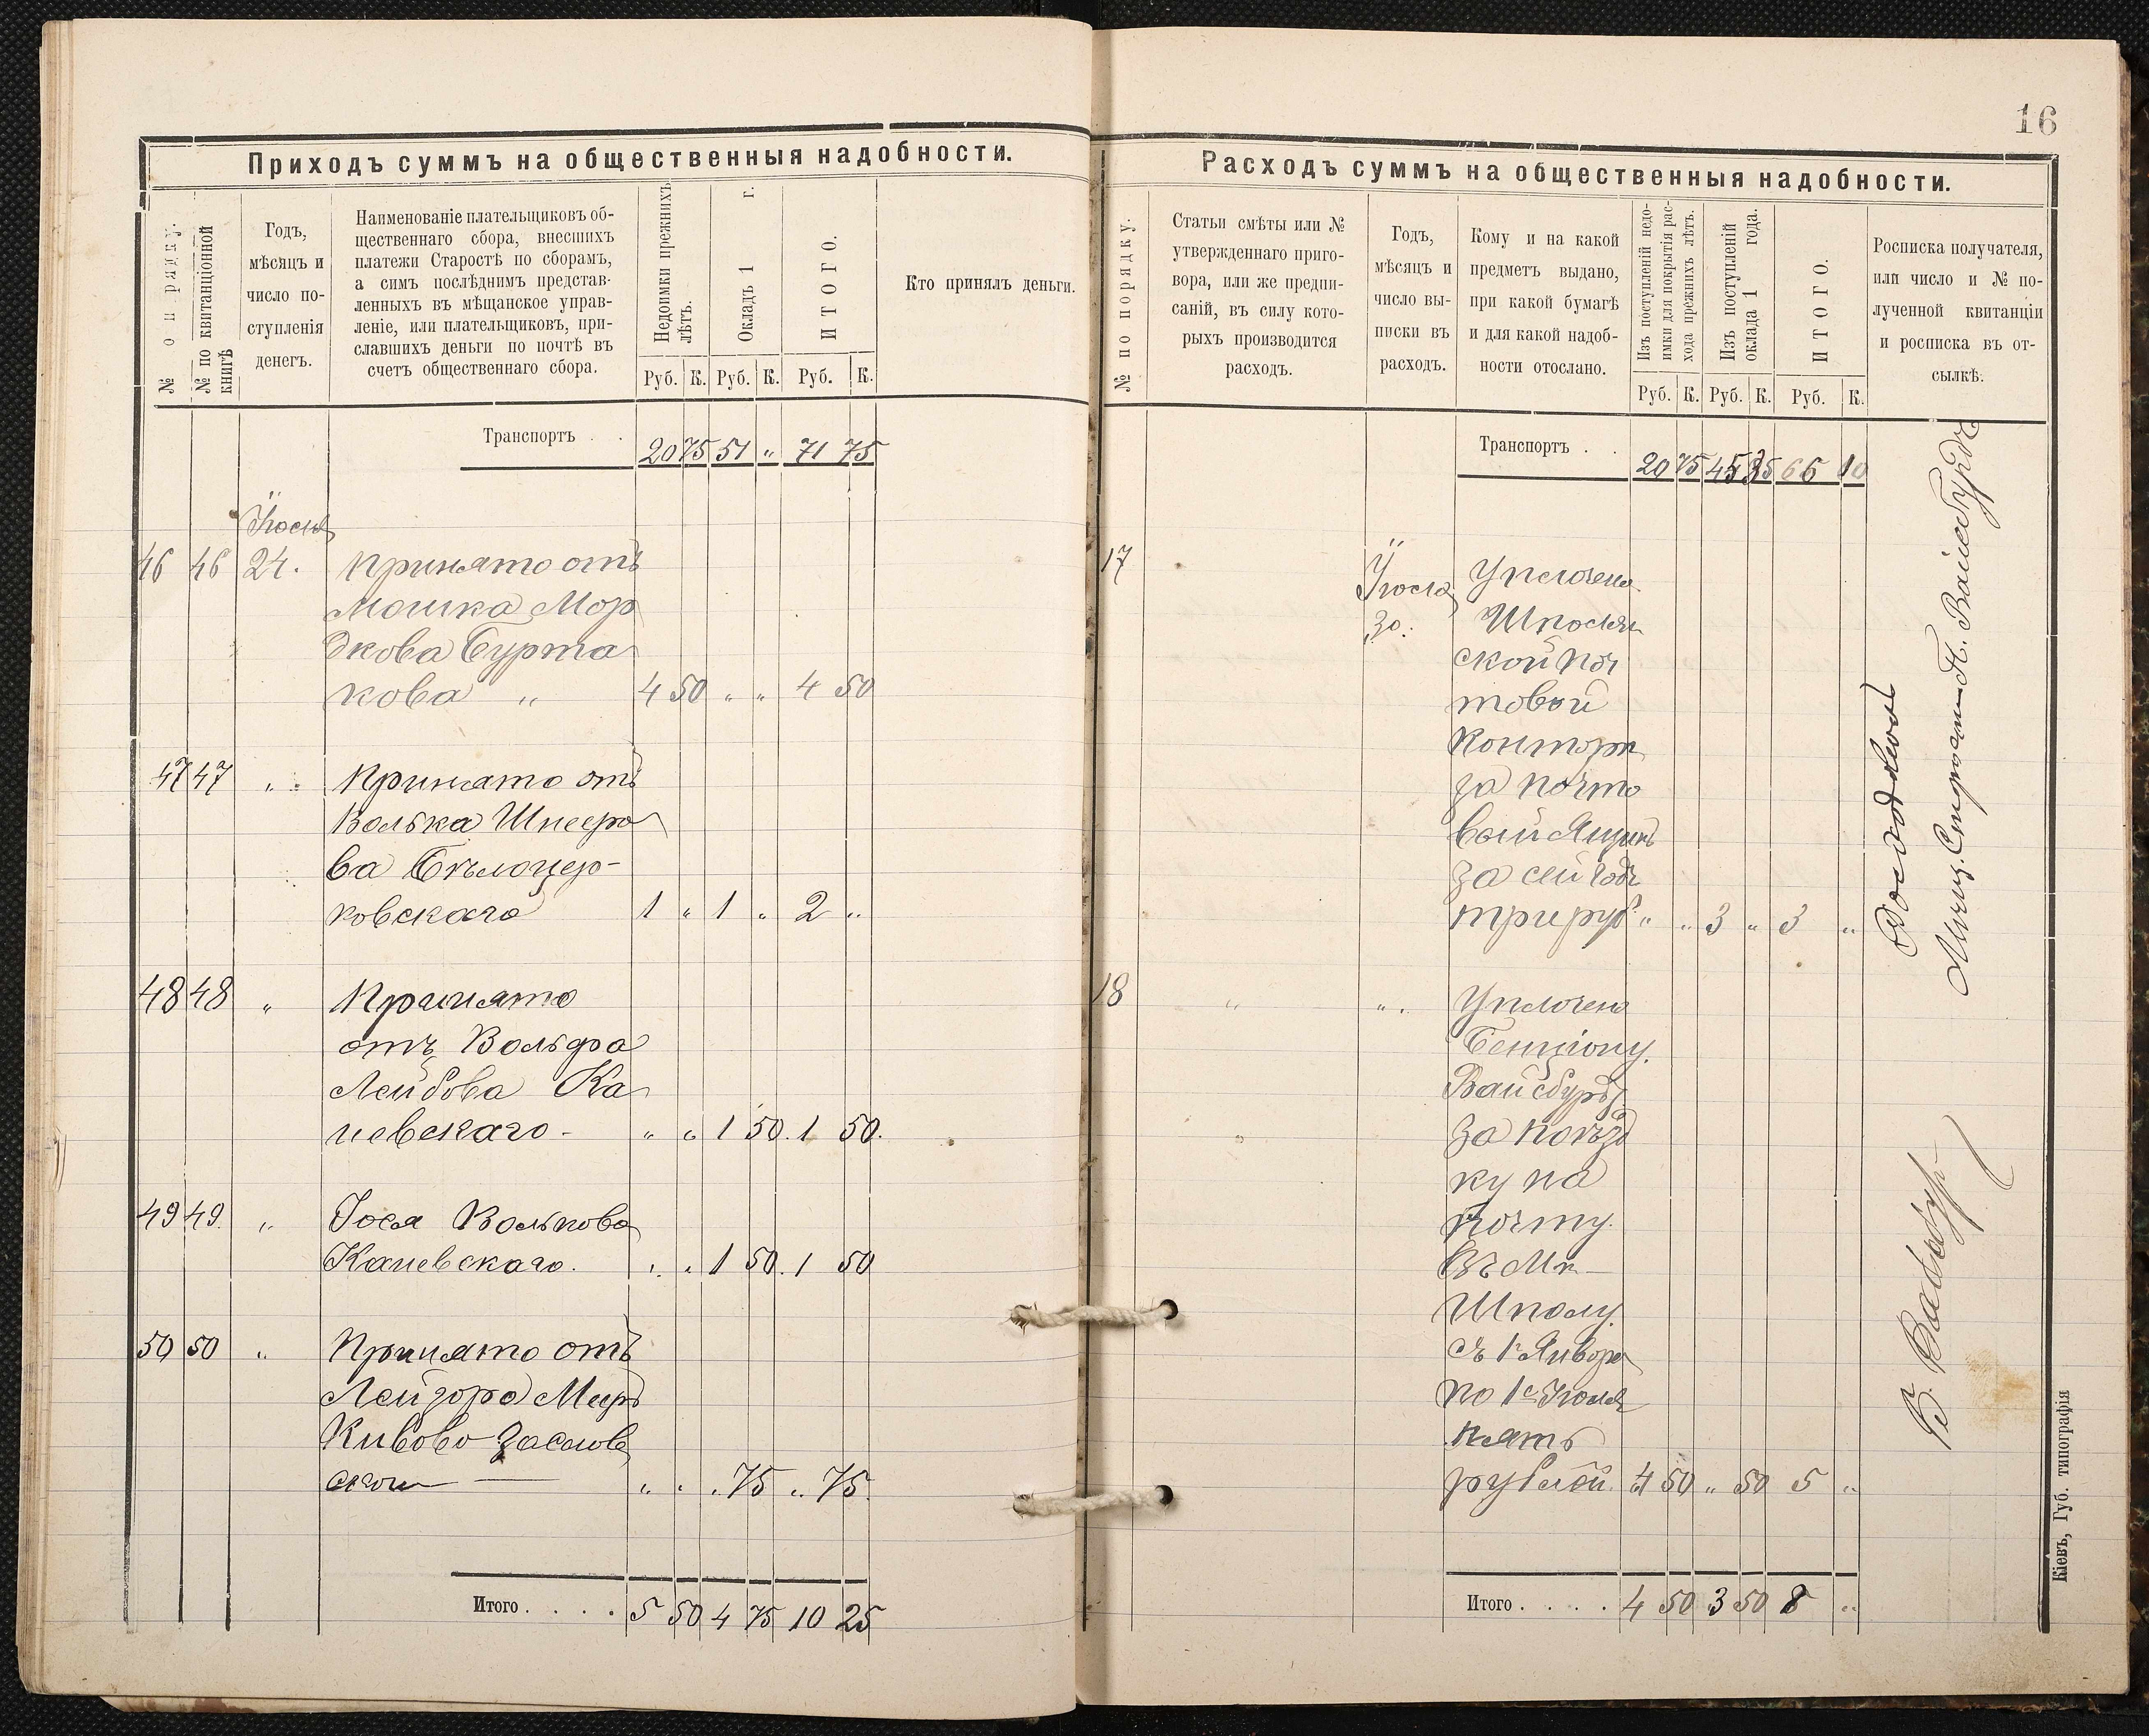 Приходъ суммъ на общественныя надобности.
№ по рядку.
№ по квитанціонной
книгѣ
Годъ,
мѣсяцъ и
число по-
ступленія
денегъ.
Наименованіе плательщиковъ об-
щественнаго сбора, внесшихъ
платежи Старостѣ по сборамъ,
а симъ послѣднимъ представ-
ленныхъ въ мѣщанское управ-
леніе, или плательщиковъ, при-
славшихъ деньги по почтѣ въ
счетъ общественнаго сбора.
Недоимки прежнихъ
лѣтъ.
Окладъ 1 г.
ИТОГО.
Руб. К. Руб. К. Руб. К.
Кто принялъ деньги.
Транспортъ . . 20 75 51 „ 71 75
Іюля
46 46 24. Принято отъ
Мошка Мор
дкова Бурта
кова „ 4 50 „ „ 4 50
47 47 „ Принято отъ
Волька Шнееро
ва Бѣлоцер-
ковскаго 1 „ 1 „ 2 „
48 48 „ Принято
отъ Вольфа
Лейбова Ка
невскаго - „ „ 1 50. 1 50.
49 49. „ Іося Волькова
Каневскаго. „ „ 1 50. 1 50
50 50 „ Принято отъ
Лейзора Меръ
Кивово Заслов
„ „ „ 75 „ 75.
Итого . . . . 5 50 4 75 10 25
16
Расходъ суммъ на общественныя надобности.
№ по порядку.
Статьи смѣты или №
утвержденнаго приго-
вора, или же предпи-
саній, въ силу кото-
рыхъ производится
расходъ.
Годъ,
мѣсяцъ и
число вы-
писки въ
расходъ.
Кому и на какой
предметъ выдано,
при какой бумагѣ
и для какой надоб-
ности отослано.
Изъ поступленій недо-
имки для покрытія рас-
хода прежнихъ лѣтъ.
Изъ поступленій
оклада 1 года.
ИТОГО.
Руб. К. Руб. К. Руб. К.
Росписка получателя,
или число и № по-
лученной квитанціи
и росписка въ от-
сылкѣ.
Транспортъ . . 20 75 45 35 66 10
17 Іюля Уплочено
30. Шполян
ской поч
товой
Конторѣ
за почто
вый Ящикъ
за сей годъ
три руб. „ „ 3 „ 3 „
Мѣщ. Староста Н. Вайсбурдъ
18 „ „ . Уплочено
Бенціону
Вайсбурду
за поѣзд
ку на
почту
въ М.
Шполу.
съ 1го Января
по 1е Іюля
пять
рублей. 4 50 „ 50 5 „
Б. Вайсбурд
Итого . . . . 4 50 3 50 8 „
Кіевъ, Губ. типографія